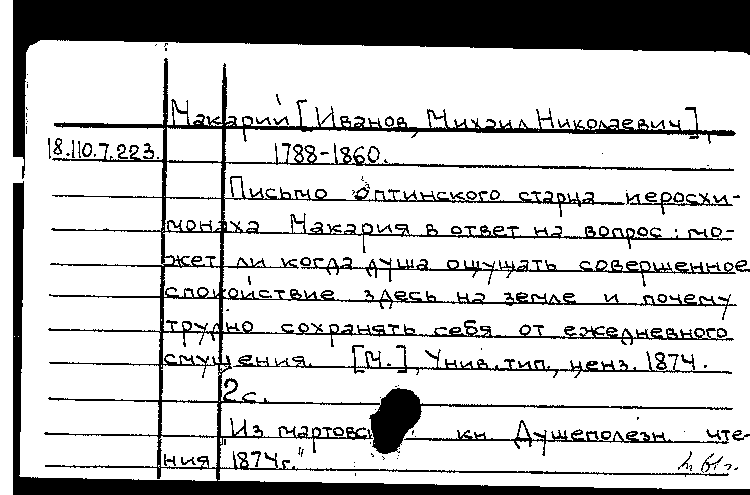 Макарий [Иванов, Михаил Николаевич],
18.110.7.223. 1788-1860.
Письмо Оптинского старца иеросхи-
монаха Макария в ответ на вопрос: мо-
жет ли когда душа ощущать совершенное
спокойствие здесь на земле и почему
трудно сохранять себя от ежедневного
смущения. [М.], Унив. тип., ценз. 1874.
2 с.
Из кн. Душеполезн. чте-
ния 1874г."